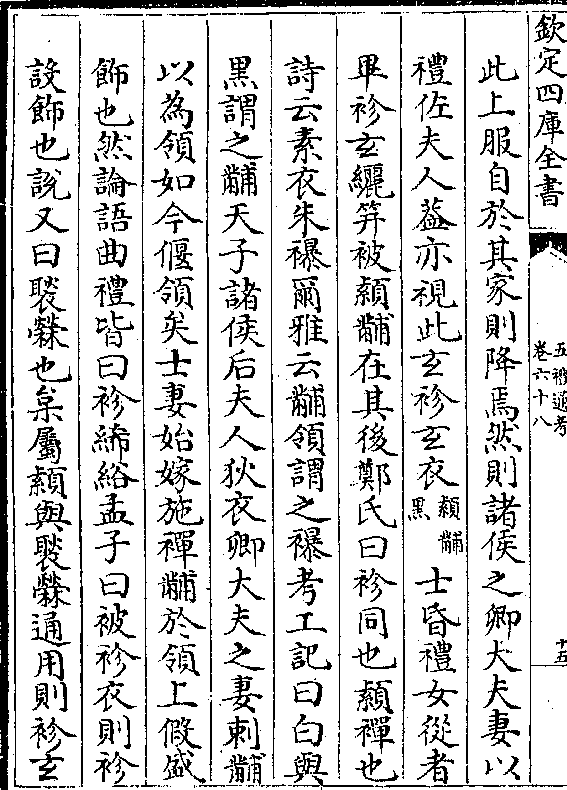 欽定四庫全書
五禮通考
卷六十八
十五
此上服自於其家則降焉然則諸侯之卿大夫妻以
禮佐夫人葢亦視此玄袗玄衣
纇黼
黑
士昏禮女從者
畢袗玄纚笄被纇黼在其後鄭氏曰袗同也纇禪也
詩云素衣朱襮爾雅云黼領謂之襮考工記曰白與
黑謂之黼天子諸侯后夫人狄衣卿大夫之妻刺黼
以為領如今偃領矣士妻始嫁施禪黼於領上假盛
飾也然論語曲禮皆曰袗絺綌孟子曰被袗衣則袗
設飾也說又曰褧檾也枲屬纇與褧檾通用則袗玄